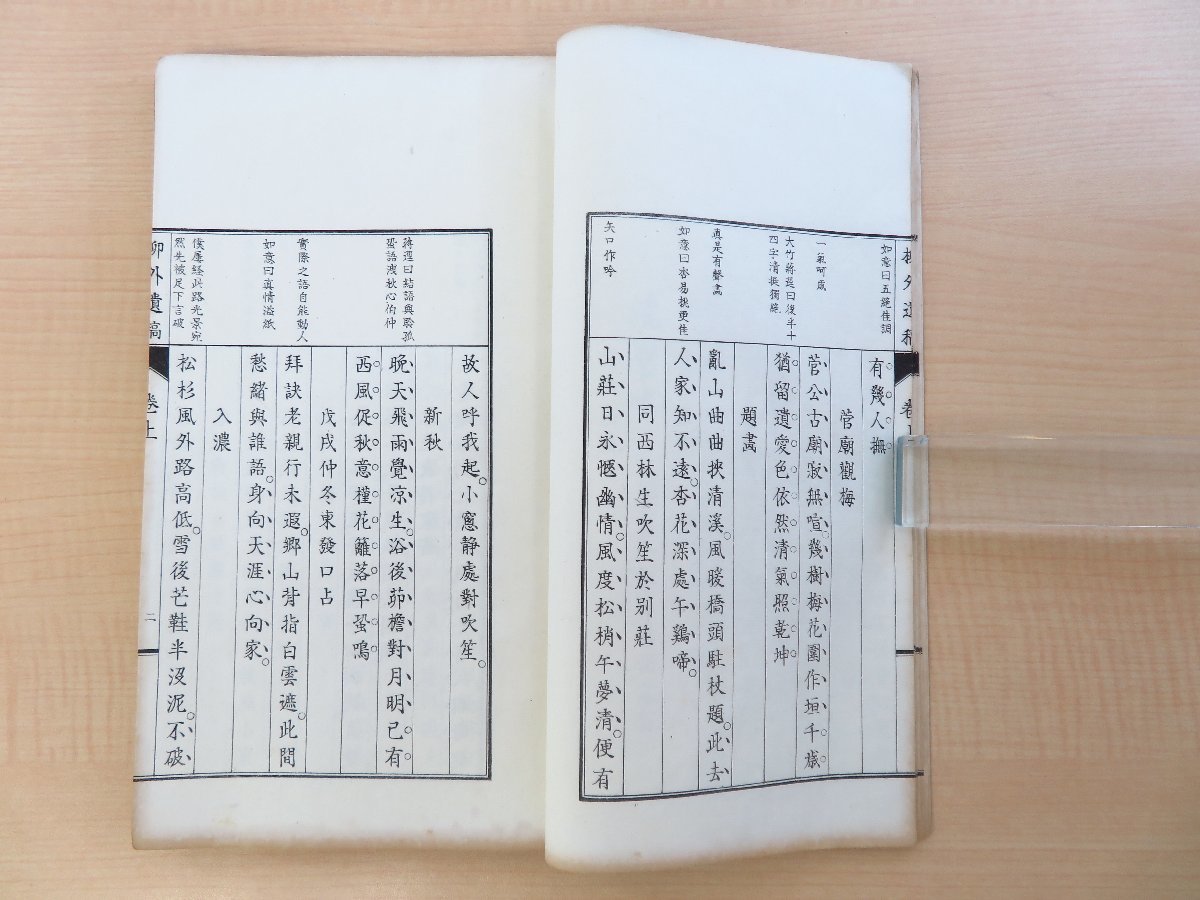 有幾人撫。
菅廟觀梅
菅公古廟寂無喧。幾樹梅花圍作垣。千歲
猶留遺愛色。依然清氣照乾坤。
題畫
亂山曲曲挾清溪。風暖橋頭駐杖題。此去
人家知不遠。杏花深處午鷄啼。
同西林生吹笙於別莊
山莊日永愜幽情。風度松梢午夢清。便有
如意曰五絕佳調
一氣呵成
大竹蔣逕曰後半十
四字清挺獨絕
真是有聲畫
如意曰杏易桃更佳
矢口作吟
故人呼我起。小窻靜處對吹笙。
新秋
晚天飛雨覺凉生。浴後茆檐對月明。已有
西風促秋意。槿花籬落早蛩鳴
戊戌仲冬東發口占
拜訣老親行未遐。鄉山背指白雲遮。此間
愁緒與誰語。身向天涯心向家。
入濃
松杉風外路高低。雪後芒鞋半沒泥。不破
蔣逕曰結語與聆孤
蛩語洩秋心伯仲
實際之語自能動人
如意曰真情溢紙
僕屢経此路光景宛
然先被足下言破
柳外遺稿
卷上
二